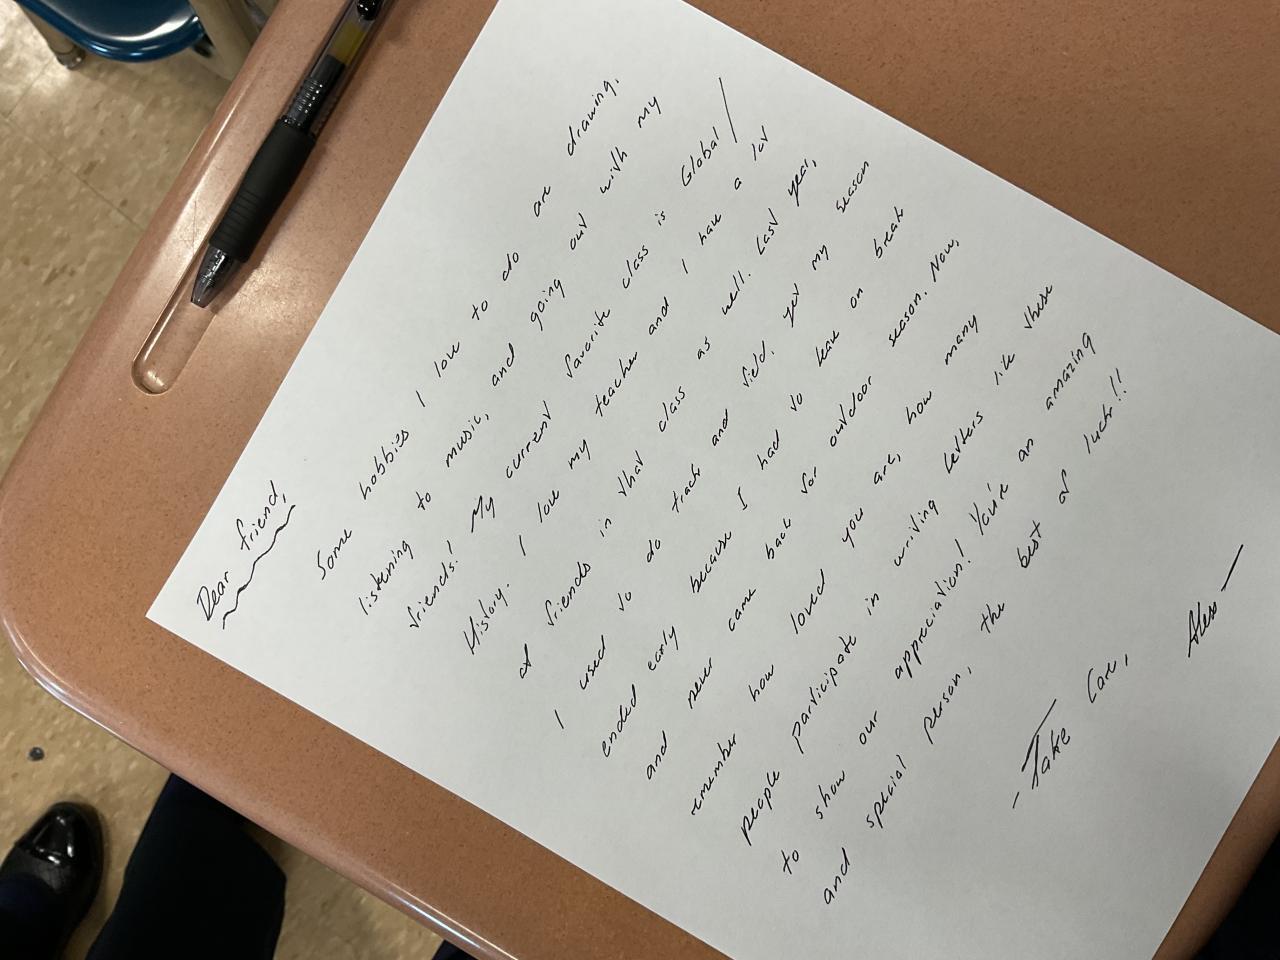 Dear friend,
Some hobbies I love to do are drawing,
listening to music, and going out with my
friends! My current favorite class is Global /
History. I love my teacher and I have a lot
of friends in that class as well. Last year,
I used to do track and field, yet my season
ended early because I had to leave on break
and never came back for outdoor season. Now,
remember how loved you are, how many
people participate in writing letters like these
to show our appreciation! You're an amazing
and special person, the best of luck!!
- Take Care,
Alex —